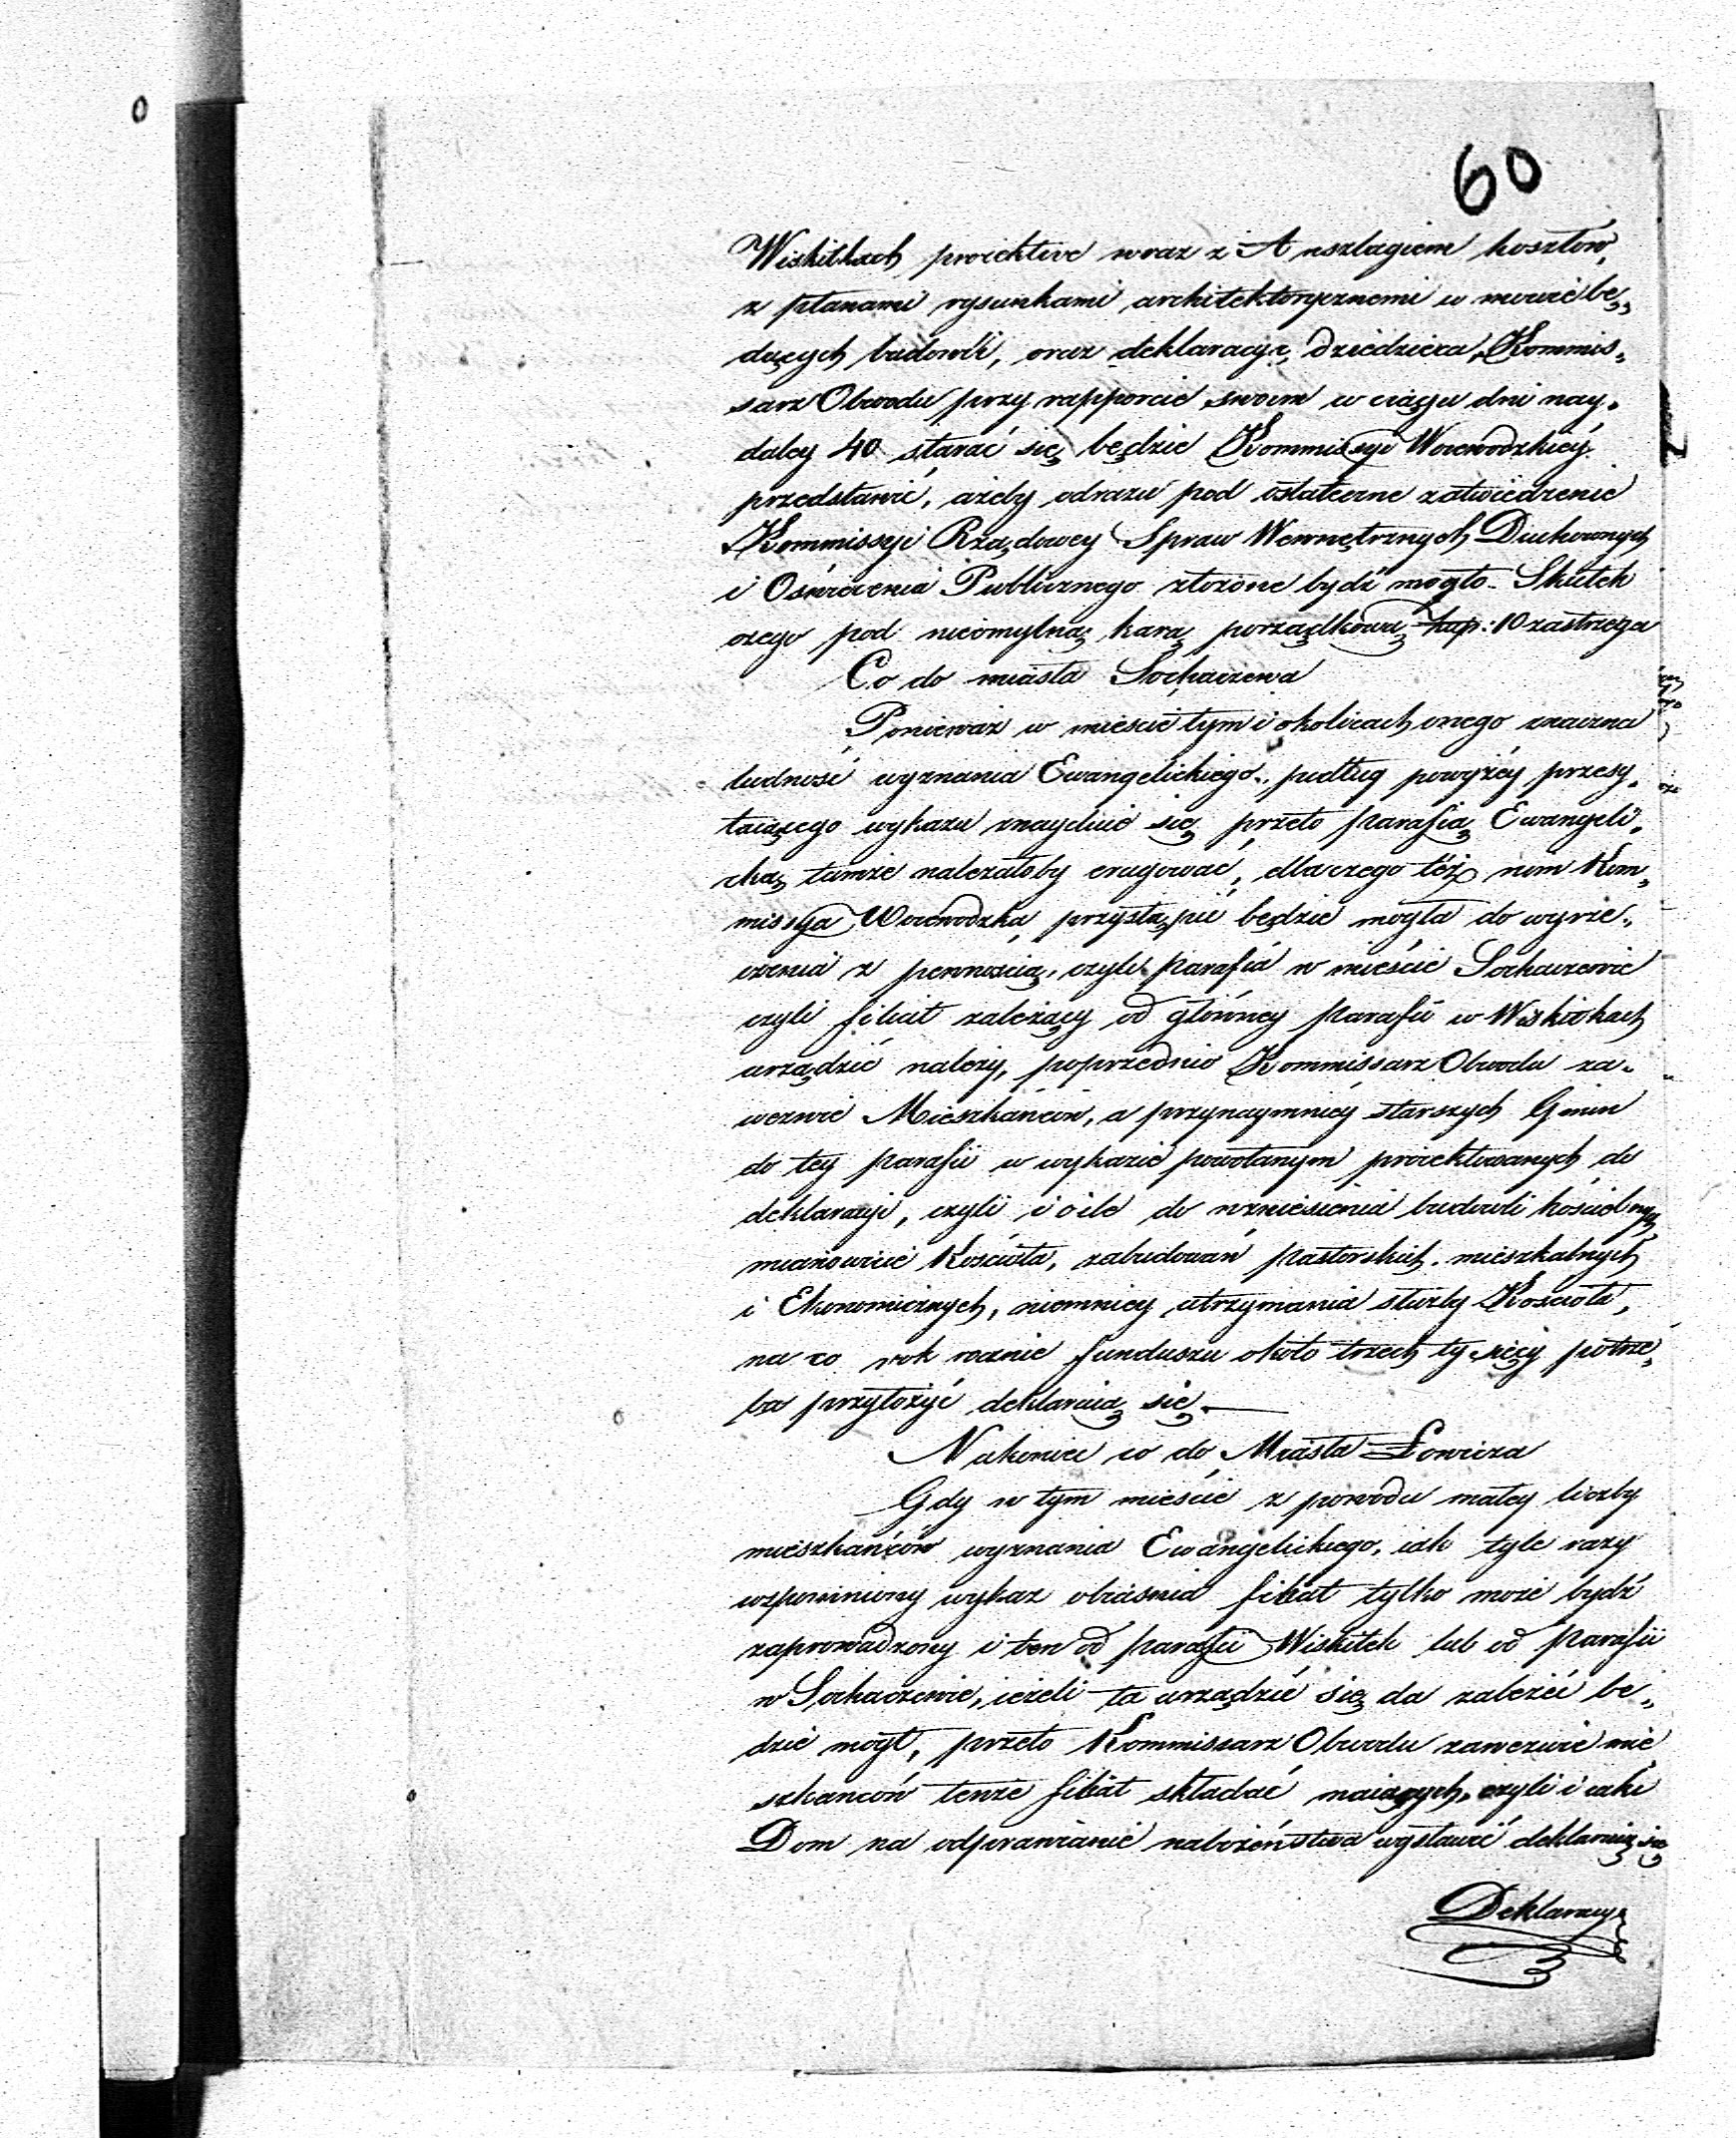 60
Wiskitkach proiektive wraz z Anszlagiem kosztów,
z planami rysunkami architektorycznemi w mowie bę„
dących budowli, oraz deklaracyę dziedzica, Kommis„
sarz Obwodu przy rapporcie swoim w ciągu dni nay„
daley 40 starać się będzie Kommissyi Woiewodzkiéy
przedstawić, ażeby odrazu pod ostateczne zatwiedzenie
Kommissyi Rządowey Spraw Wewnętrznych Duchownych
i Oświecenia Publicznego złożone bydź mogło. Skutek
czego pod nieomylną karą porządkową 10 zastrzega
Co do miasta Sochaczewa
Ponieważ w mieście tym i okolicach onego znaczna
ludność wyznania Ewangelickiego, podług powyżéy przesy„
łaiącego wykazu znayduie się przeto Parafią Ewangeli„
cką tamże należałoby eragować, dlaczego też nim Kom„
missya Woiewodzka przystąpić będzie mogła do wyrze„
czenia z pewnością, czyli Parafia w mieście Sochaczewie
czyli filiał zależący od główney Parafii w Wiskitkach
urządzić należy, poprzednio Kommissarz Obwodu za„
wezwie Mieszkańców, a przynaymniéy starszych Gmin
do tey Parafii w wykazie powołanym proiektowanych do
deklaracyi, czyli i o ile do wzniesienia budowli kościelnych
mianowicie Kościoła, zabudowań Pastorskich, mieszkalnych
i Ekonomicznych, niemniey utrzymania służby Kościoła,
na co rok rocznie funduszu około trzech tysięcy potrze„
ba przyłożyć deklaruią się.
Nakoniec co do Miasta Łowicza
Gdy w tym mieście z powodu małey liczby
mieszkańców wyznania Ewangelickiego, iak tyle razy
wspomniony wykaz obiaśnia filiał tylko może bydź
zaprowadzony i ten od parafii Wiskitek lub od Parafii
w Sochaczewie, ieżeli ta urządzić się da zależeć bę„
dzie mógł, przeto Kommissarz Obwodu zawezwie mie
szkańców tenże filiał składać maiących, czyli i iaki
Dom na odprawianie nabożeństwa wystawić deklaruią się
Deklaracye